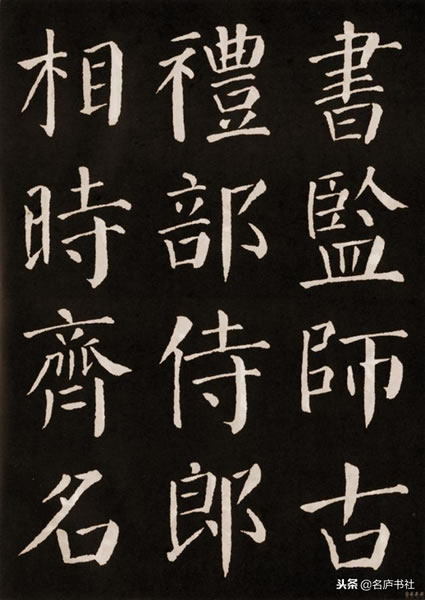 書監師古
禮部侍郎
相時齊名
头条@名庐书社